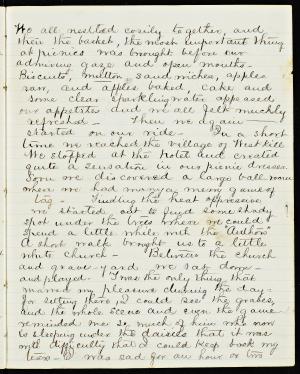 We all nestled cosily together, and
then the basket, the most important thing
at picnics was brought before our
admiring gaze and open mouths -
Biscuits, Mutton - sandwiches, apples
raw, and apples baked, cake and
some clear sparkling water appeased
our appetites and we all felt muckly
refreshed - Then we again
started on our ride - In a short
time we reached the village of Westkill
We stopped at the Hotel and created
quite a sensation in our picnic dresses.
Soon we discovered a large ball room
where we had many a merry game of
tag - Finding the heat oppressive
we started out to find some shady
spot under the trees where we could
spend a little while with the "Authors"
A short walk brought us to a little
white church - Between the church
and grave-yard we sat down -
and played - 'Twas the only thing that
marred my pleasure during the day -
for sitting there, I could see the graves,
and the whole scene and even the game
reminded me so much of him who now
is sleeping under the daisies that it was
with difficulty that I could keep back my
tears - I was sad for an hour or two